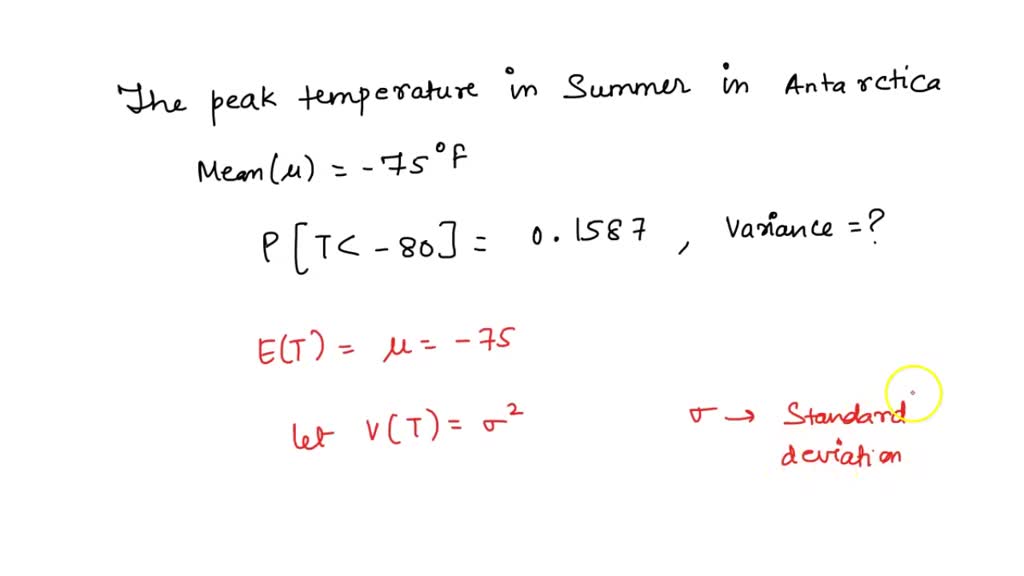 The peak temperature in Summer in Antarctica
Mean(μ) = -75°F
P[T< -80] = 0.1587, Variance = ?
E(T) = μ = -75
let V(T) = σ²
σ → Standard
deviation